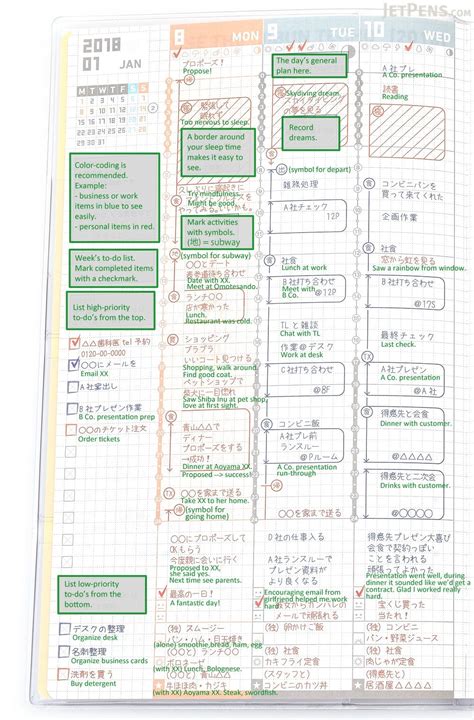 JetPens.com
2018
01 JAN
M T W T F S S
1 2 3 4 5 6 7
8 9 10 11 12 13 14
15 16 17 18 19 20 21
22 23 24 25 26 27 28
29 30 31
Color-coding is
recommended.
Example:
- business or work
items in blue to see
easily.
- personal items in red.
Week's to-do list.
Mark completed items
with a checkmark.
List high-priority
to-do's from the top.
△△歯医者 tel 予約
0120-00-0000
○○にメールを
Email XX
A社 家出し
B社プレゼン作業
B Co. presentation prep
○○のチケット注文
Order tickets
List low-priority
to-do's from the
bottom.
デスクの整理
Organize desk
名刺整理
Organize business cards
洗剤を買う
Buy detergent
8 MON
プロポーズ!
Propose!
緊張して
眠れず
Too nervous to sleep.
A border around
your sleep time
makes it easy to
see.
Try mindfulness.
Might be good.
Mark activities
with symbols.
(地) = subway
(symbol for subway)
○○とデート
Date with XX.
表参道待ち合わせ
Meet at Omotesando.
ランチ○○
Lunch.
店が寒かった
Restaurant was cold.
ショッピング
プラプラ
Shopping, walk around.
いいコート見つける
Find good coat.
ペットショップで
Saw Shiba Inu at pet shop,
柴犬に一目惚
love at first sight.
青山△△で
ディナー
プロポーズをする
→ 成功!
Dinner at Aoyama XX.
Proposed --> success!
TX
○○を家まで送る
Take XX to her home.
(symbol for
going home)
○○にプロポーズして
OKもらう
Proposed to XX,
she said yes.
今度親に会いに行く
Next time see parents.
最高の一日!
A fantastic day!
(独) スムージー
パン・ハム・目玉焼き
(alone) smoothie,bread, ham, egg
(with XX) Lunch, Bolognese.
ボロネーゼ
牛ほほ肉・カジキ
(with XX) Aoyama XX. Steak, swordfish.
9 TUE
The day's general
plan here.
Skydiving dream.
スカイダイビング
の夢を見る
Record
dreams.
出 (symbol for depart)
雑務処理
A社チェック
12P
社食
Lunch at work
B社打ち合わせ
Meet with
B Co.
@12P
TLと雑談
Chat with TL
作業@デスク
Work at desk
C社打ち合わせ
@8F
コンビニ飯
A社プレ前
ランスルー
@Fルーム
A Co. presentation
run-through
○○を家まで送る
D社の仕事入る
A社ランスルーで
プレゼン資料が
より良くなる
Encouraging email from
girlfriend helped me work
hard.
彼女からガンバレの
メールで頑張れる
(独) 卵かけご飯
(社食)
カキフライ定食
(スタッフと)
コンビニのカツ丼
10 WED
A社プレ
A Co. presentation
読書
Reading
コンビニパンを
買って来てくれた
企画作業
社食
窓から虹を見る
Saw a rainbow from window.
B社打ち合わせ
@17S
最終チェック
Last check.
TX
A社プレゼン
A Co. presentation
得意先と会食
Dinner with customer.
得意先と二次会
Drinks with customer.
得意先プレゼン大喜び
会食で契約っぽい
ことを言われる
頑張ってよかった
Presentation went well, during
dinner it sounded like we'd get a
contract. Glad I worked really
hard.
宝くじ買った
当たれ!
(独) コンビニ
パン・野菜ジュース
(社食)
肉じゃが定食
(得意先と)
居酒屋△△